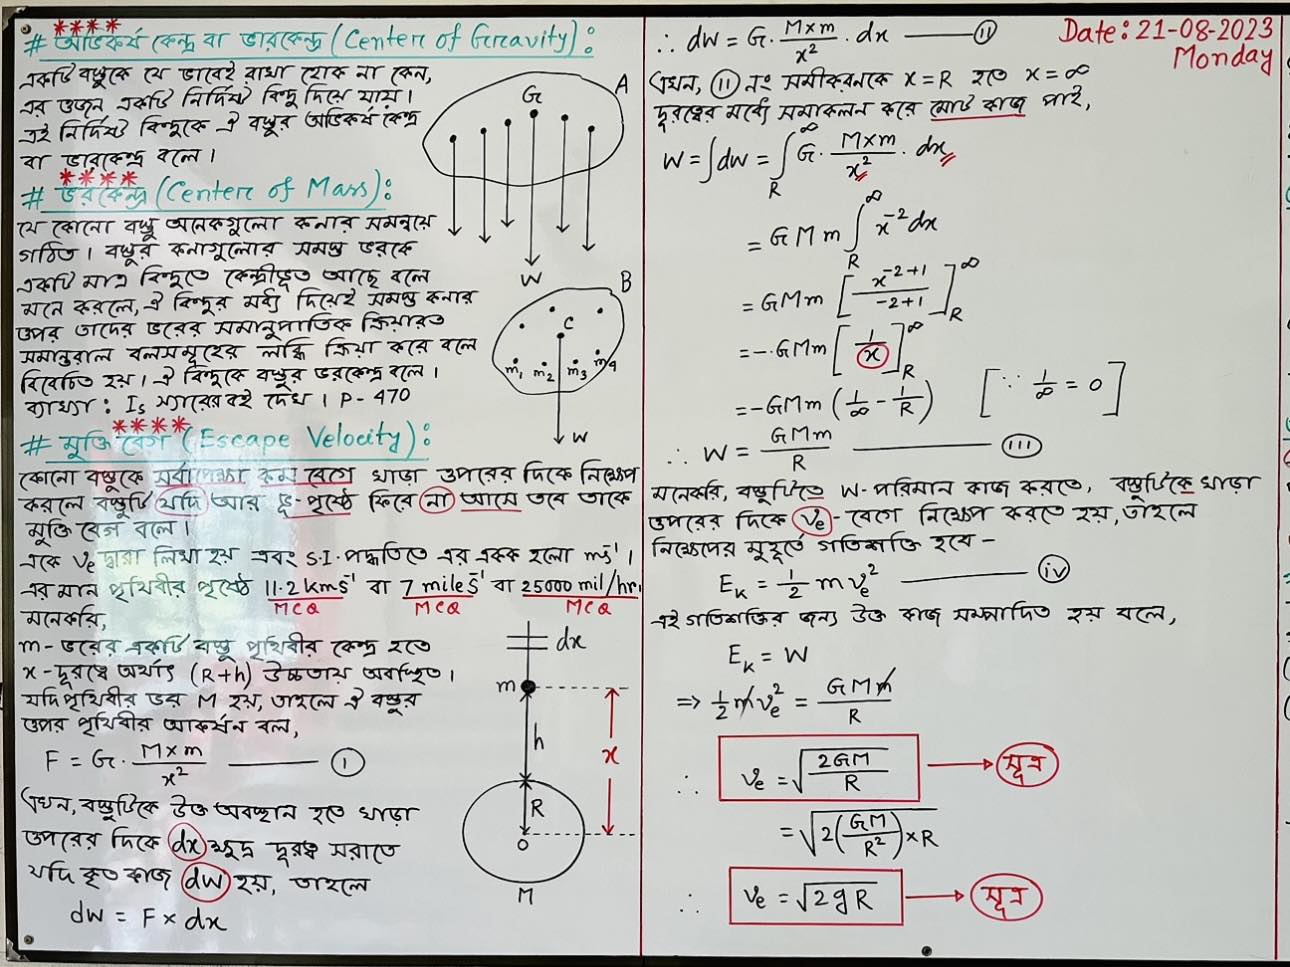 ****
# অভিকর্ষ কেন্দ্র বা ভারকেন্দ্র (Center of Gravity):
একটি বস্তুকে যে ভাবেই রাখা হোক না কেন,
এর ওজন একটি নির্দিষ্ট বিন্দু দিয়ে যায়।
এই নির্দিষ্ট বিন্দুকে ঐ বস্তুর অভিকর্ষ কেন্দ্র
বা ভারকেন্দ্র বলে।
A
G
W
****
# ভরকেন্দ্র (Center of Mass):
যে কোনো বস্তু অনেকগুলো কনার সমন্বয়ে
গঠিত। বস্তুর কনাগুলোর সমস্ত ভরকে
একটি মাত্র বিন্দুতে কেন্দ্রীভূত আছে বলে
মনে করলে, ঐ বিন্দুর মধ্য দিয়েই সমস্ত কনার
উপর তাদের ভরের সমানুপাতিক ক্রিয়ারত
সমান্তরাল বলসমূহের লব্ধি ক্রিয়া করে বলে
বিবেচিত হয়। ঐ বিন্দুকে বস্তুর ভরকেন্দ্র বলে।
ব্যাখ্যা: Is স্যারের বই দেখ। P-470
B
C
m₁ m₂ m₃ m₄
W
****
# মুক্তি বেগ (Escape Velocity):
কোনো বস্তুকে সর্বাপেক্ষা কম বেগে খাড়া উপরের দিকে নিক্ষেপ
করলে বস্তুটি যদি আর ভূ-পৃষ্ঠে ফিরে না আসে তবে তাকে
মুক্তি বেগ বলে।
একে vₑ দ্বারা লিখা হয় এবং S.I. পদ্ধতিতে এর একক হলো ms⁻¹।
এর মান পৃথিবীর পৃষ্ঠে 11.2 kms⁻¹ বা 7 mile s⁻¹ বা 25000 mil/hr।
MCQ MCQ MCQ
মনেকরি,
m- ভরের একটি বস্তু পৃথিবীর কেন্দ্র হতে
x- দূরত্বে অর্থাৎ (R+h) উচ্চতায় অবস্থিত।
যদি পৃথিবীর ভর M হয়, তাহলে ঐ বস্তুর
উপর পৃথিবীর আকর্ষন বল,
F = G. M×m/x² ——— (i)
এখন, বস্তুটিকে উক্ত অবস্থান হতে খাড়া
উপরের দিকে dx ক্ষুদ্র দূরত্ব সরাতে
যদি কৃত কাজ dW হয়, তাহলে
dW = F × dx
dx
m
h
x
R
O
M
Date: 21-08-2023
Monday
∴ dW = G. M×m/x² . dx ——— (ii)
এখন, (ii) নং সমীকরনকে x=R হতে x=∞
দূরত্বের মধ্যে সমাকলন করে মোট কাজ পাই,
W = ∫dW = ∫_R^∞ G. M×m/x² . dx
= GMm ∫_R^∞ x⁻² dx
= GMm [x⁻²⁺¹/-2+1]_R^∞
= -GMm [1/x]_R^∞
= -GMm (1/∞ - 1/R) [∵ 1/∞ = 0]
∴ W = GMm/R ——— (iii)
মনেকরি, বস্তুটিতে W-পরিমান কাজ করতে, বস্তুটিকে খাড়া
উপরের দিকে vₑ - বেগে নিক্ষেপ করতে হয়, তাহলে
নিক্ষেপের মুহূর্তে গতিশক্তি হবে -
E_K = 1/2 m vₑ² ——— (iv)
এই গতিশক্তির জন্য উক্ত কাজ সম্পাদিত হয় বলে,
E_K = W
⇒ 1/2 m vₑ² = GMm/R
∴ vₑ = √(2GM/R) → সূত্র
= √(2(GM/R²)×R)
∴ vₑ = √(2gR) → সূত্র